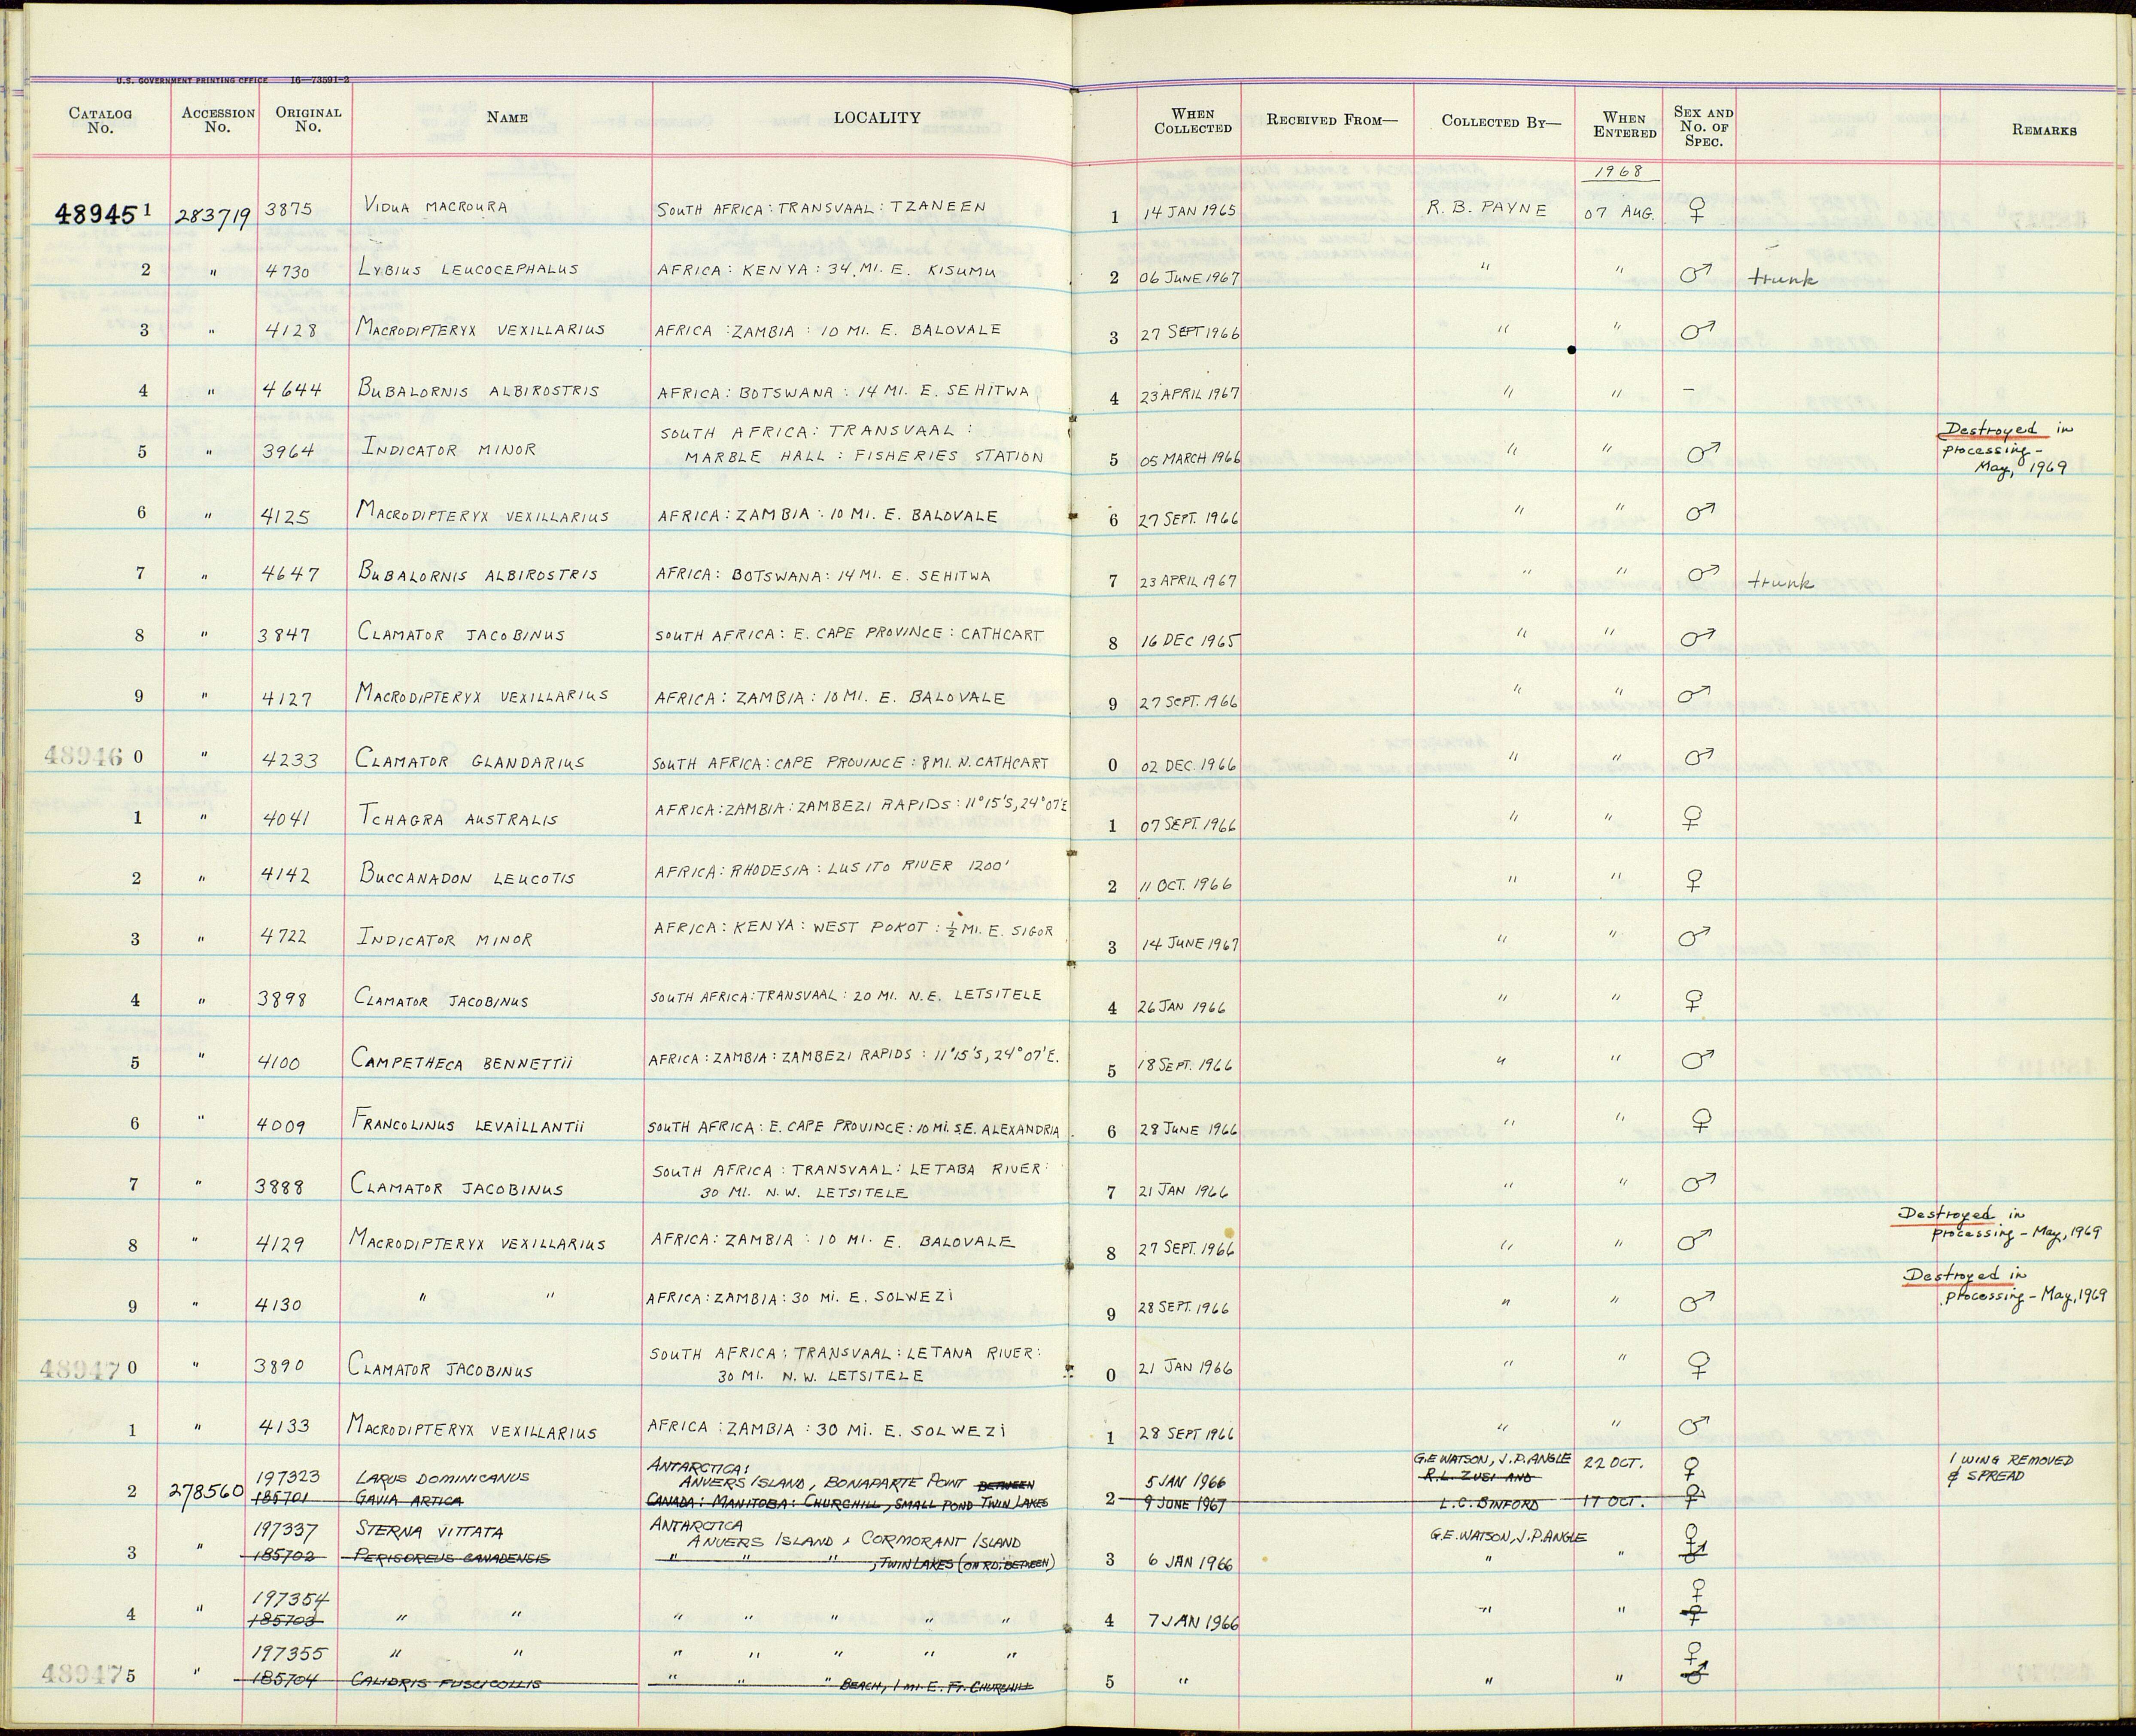 U.S. GOVERNMENT PRINTING OFFICE 16—73591-2
CATALOG No. ACCESSION No. ORIGINAL No. NAME LOCALITY WHEN COLLECTED RECEIVED FROM— COLLECTED BY— WHEN ENTERED SEX AND No. OF SPEC. REMARKS
1968
489451 283719 3875 VIDUA MACROURA SOUTH AFRICA: TRANSVAAL: TZANEEN 1 14 JAN 1965 R. B. PAYNE 07 AUG. ♀
2 " 4730 LYBIUS LEUCOCEPHALUS AFRICA: KENYA: 34 MI. E. KISUMU 2 06 JUNE 1967 " " ♂ trunk
3 " 4128 MACRODIPTERYX VEXILLARIUS AFRICA: ZAMBIA: 10 MI. E. BALOVALE 3 27 SEPT 1966 " " ♂
4 " 4644 BUBALORNIS ALBIROSTRIS AFRICA: BOTSWANA: 14 MI. E. SEHITWA 4 23 APRIL 1967 " " –
5 " 3964 INDICATOR MINOR SOUTH AFRICA: TRANSVAAL:
MARBLE HALL: FISHERIES STATION 5 05 MARCH 1966 " " ♂ Destroyed in
processing –
May, 1969
6 " 4125 MACRODIPTERYX VEXILLARIUS AFRICA: ZAMBIA: 10 MI. E. BALOVALE 6 27 SEPT. 1966 " " ♂
7 " 4647 BUBALORNIS ALBIROSTRIS AFRICA: BOTSWANA: 14 MI. E. SEHITWA 7 23 APRIL 1967 " " ♂ trunk
8 " 3847 CLAMATOR JACOBINUS SOUTH AFRICA: E. CAPE PROVINCE: CATHCART 8 16 DEC 1965 " " ♂
9 " 4127 MACRODIPTERYX VEXILLARIUS AFRICA: ZAMBIA: 10 MI. E. BALOVALE 9 27 SEPT. 1966 " " ♂
48946 0 " 4233 CLAMATOR GLANDARIUS SOUTH AFRICA: CAPE PROVINCE: 8 MI. N. CATHCART 0 02 DEC. 1966 " " ♂
1 " 4041 TCHAGRA AUSTRALIS AFRICA: ZAMBIA: ZAMBEZI RAPIDS: 11°15'S, 24°07'E 1 07 SEPT. 1966 " " ♀
2 " 4142 BUCCANADON LEUCOTIS AFRICA: RHODESIA: LUSITO RIVER 1200' 2 11 OCT. 1966 " " ♀
3 " 4722 INDICATOR MINOR AFRICA: KENYA: WEST POKOT: ½ MI. E. SIGOR 3 14 JUNE 1967 " " ♂
4 " 3898 CLAMATOR JACOBINUS SOUTH AFRICA: TRANSVAAL: 20 MI. N.E. LETSITELE 4 26 JAN 1966 " " ♀
5 " 4100 CAMPETHECA BENNETTII AFRICA: ZAMBIA: ZAMBEZI RAPIDS: 11°15'S, 24°07'E. 5 18 SEPT. 1966 " " ♂
6 " 4009 FRANCOLINUS LEVAILLANTII SOUTH AFRICA: E. CAPE PROVINCE: 10 MI. S.E. ALEXANDRIA 6 28 JUNE 1966 " " ♀
7 " 3888 CLAMATOR JACOBINUS SOUTH AFRICA: TRANSVAAL: LETABA RIVER:
30 MI. N.W. LETSITELE 7 21 JAN 1966 " " ♂
8 " 4129 MACRODIPTERYX VEXILLARIUS AFRICA: ZAMBIA: 10 MI. E. BALOVALE 8 27 SEPT. 1966 " " ♂ Destroyed in
processing – May, 1969
9 " 4130 " " AFRICA: ZAMBIA: 30 MI. E. SOLWEZI 9 28 SEPT. 1966 " " ♂ Destroyed in
processing – May, 1969
48947 0 " 3890 CLAMATOR JACOBINUS SOUTH AFRICA: TRANSVAAL: LETANA RIVER:
30 MI. N.W. LETSITELE 0 21 JAN 1966 " " ♀
1 " 4133 MACRODIPTERYX VEXILLARIUS AFRICA: ZAMBIA: 30 MI. E. SOLWEZI 1 28 SEPT 1966 " " ♂
ANTARCTICA: G.E. WATSON, J.P. ANGLE 22 OCT. ♀ 1 WING REMOVED
197323 LARUS DOMINICANUS ANVERS ISLAND, BONAPARTE POINT BETWEEN 5 JAN 1966 R.L. ZUSI AND & SPREAD
2 278560 185701 GAVIA ARTICA CANADA: MANITOBA: CHURCHILL, SMALL POND TWIN LAKES 2 9 JUNE 1967 L.C. BINFORD 17 OCT. ♀
197337 STERNA VITTATA ANTARCTICA
ANVERS ISLAND, CORMORANT ISLAND G.E. WATSON, J.P. ANGLE ♀
3 " 185702 PERISOREUS CANADENSIS " " " , TWIN LAKES (ON RD. BETWEEN) 3 6 JAN 1966 " " ♂
197354 ♀
4 " 185703 " " " " " " " 4 7 JAN 1966 " " ♀
197355 " " " " " " " ♀
489475 " 185704 CALIDRIS FUSCICOLLIS " " " BEACH, 1 MI. E. FT. CHURCHILL 5 " " " ♂